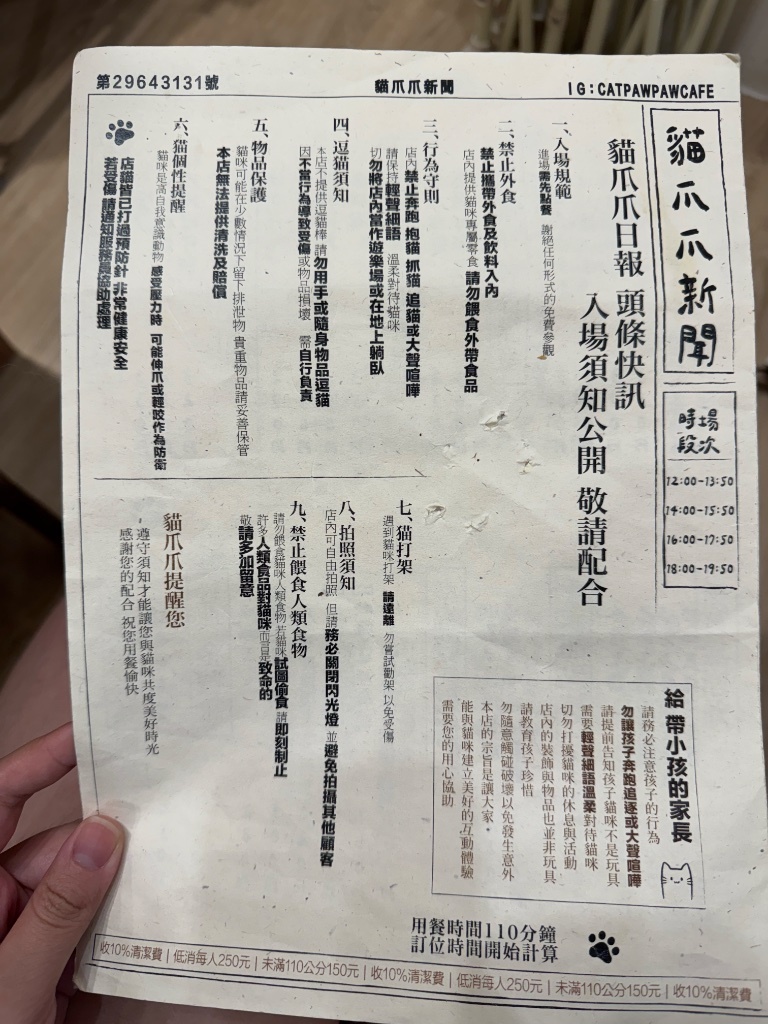 第29643131號
貓爪爪新聞
IG:CATPAWPAWCAFE
貓爪爪新聞
場次
時段
12:00-13:50
14:00-15:50
16:00-17:50
18:00-19:50
貓爪爪日報 頭條快訊
入場須知公開 敬請配合
一、入場規範
進場需先點餐 謝絕任何形式的免費參觀
二、禁止外食
禁止攜帶外食及飲料入內
店內提供貓咪專屬零食 請勿餵食外帶食品
三、行為守則
店內禁止奔跑 抱貓 抓貓 追貓或大聲喧嘩
請保持輕聲細語 溫柔對待貓咪
切勿將店內當作遊樂場或在地上躺臥
四、逗貓須知
本店不提供逗貓棒 請勿用手或隨身物品逗貓
因不當行為導致受傷或物品損壞 需自行負責
五、物品保護
貓咪可能在少數情況下留下排泄物 貴重物品請妥善保管
本店無法提供清洗及賠償
六、貓個性提醒
貓咪是高自我意識動物 感受壓力時 可能伸爪或輕咬作為防衛
店貓皆已打過預防針 非常健康安全
若受傷 請通知服務員協助處理
七、貓打架
遇到貓咪打架 請遠離 勿嘗試勸架 以免受傷
八、拍照須知
店內可自由拍照 但請務必關閉閃光燈 並避免拍攝其他顧客
九、禁止餵食人類食物
請勿餵食貓咪人類食物 若貓咪試圖偷食 請即刻制止
許多人類食品對貓咪而言是致命的
敬請多加留意
貓爪爪提醒您
遵守須知才能讓您與貓咪共度美好時光
感謝您的配合 祝您用餐愉快
給 帶小孩的家長
請務必注意孩子的行為
勿讓孩子奔跑追逐或大聲喧嘩
請提前告知孩子貓咪不是玩具
需要輕聲細語溫柔對待貓咪
切勿打擾貓咪的休息與活動
店內的裝飾與物品也並非玩具
請教育孩子珍惜
勿隨意觸碰破壞以免發生意外
本店的宗旨是讓大家
能與貓咪建立美好的互動體驗
需要您的用心協助
用餐時間110分鐘
訂位時間開始計算
收10%清潔費｜低消每人250元｜未滿110公分150元｜收10%清潔費｜低消每人250元｜未滿110公分150元｜收10%清潔費